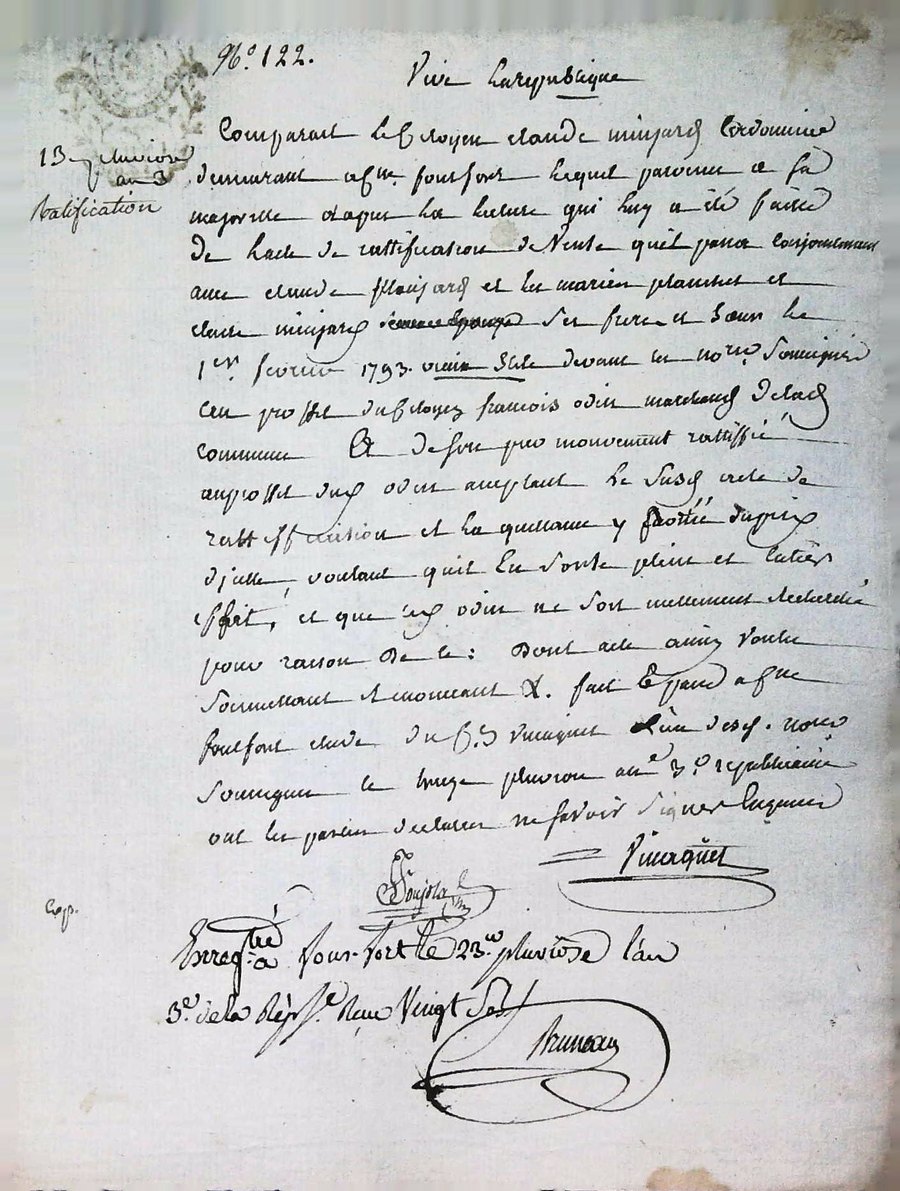 No. 122.
Vive la republique
13 pluviose
an 3
Ratification
Comparait le Citoyen claude minjard Cordonnier
demeurant a fme. fontfort lequel parvenu a sa
majorité et apres la lecture qui luy a été faitte
de lacte de rattification de Vente quil passa conjointement
avec claude minjard et les mariés planchet et
claire minjard ses frere et soeur le
1er. fevrier 1793. vieux stile devant les nores. soussignés
au proffit du Citoyen francois odin marchand de lad
commune Et de son pur mouvement rattiffié
au proffit dud odin acceptant le susd acte de
rattiffication et la quittance y portée du prix
dicelle, voulant quil en sorte plein et entier
effet, et que led odin ne soit nullement recherché
pour raison de ce: Dont acte ainsy voulu
soumettant et renoncant &. fait et passé a fme
fontfort etude du C.en Vincaquet L'un desd. nores
soussignés le treize pluviose an 3e. republicaine
ont les parties declaré ne savoir signer Enquises
Vincaquet
Cop.
Enregtré a fons-fort le 23 pluviose l'an
3e. de la Répse. Reçu Vingt Sols
Bruneau